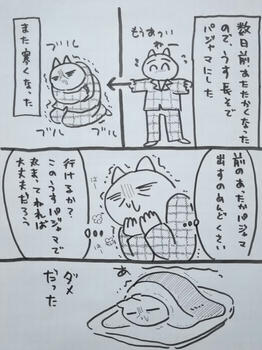 数日前あたたかくなった
ので、うす長そで
パジャマにした
もうあつい
また寒くなった
ブルル
ブル
ブル
前のあったかパジャマ
出すのめんどくさい
行けるか?
このうすパジャマで
丸まってねれば
大丈夫だろう
あ
ダメ
だった